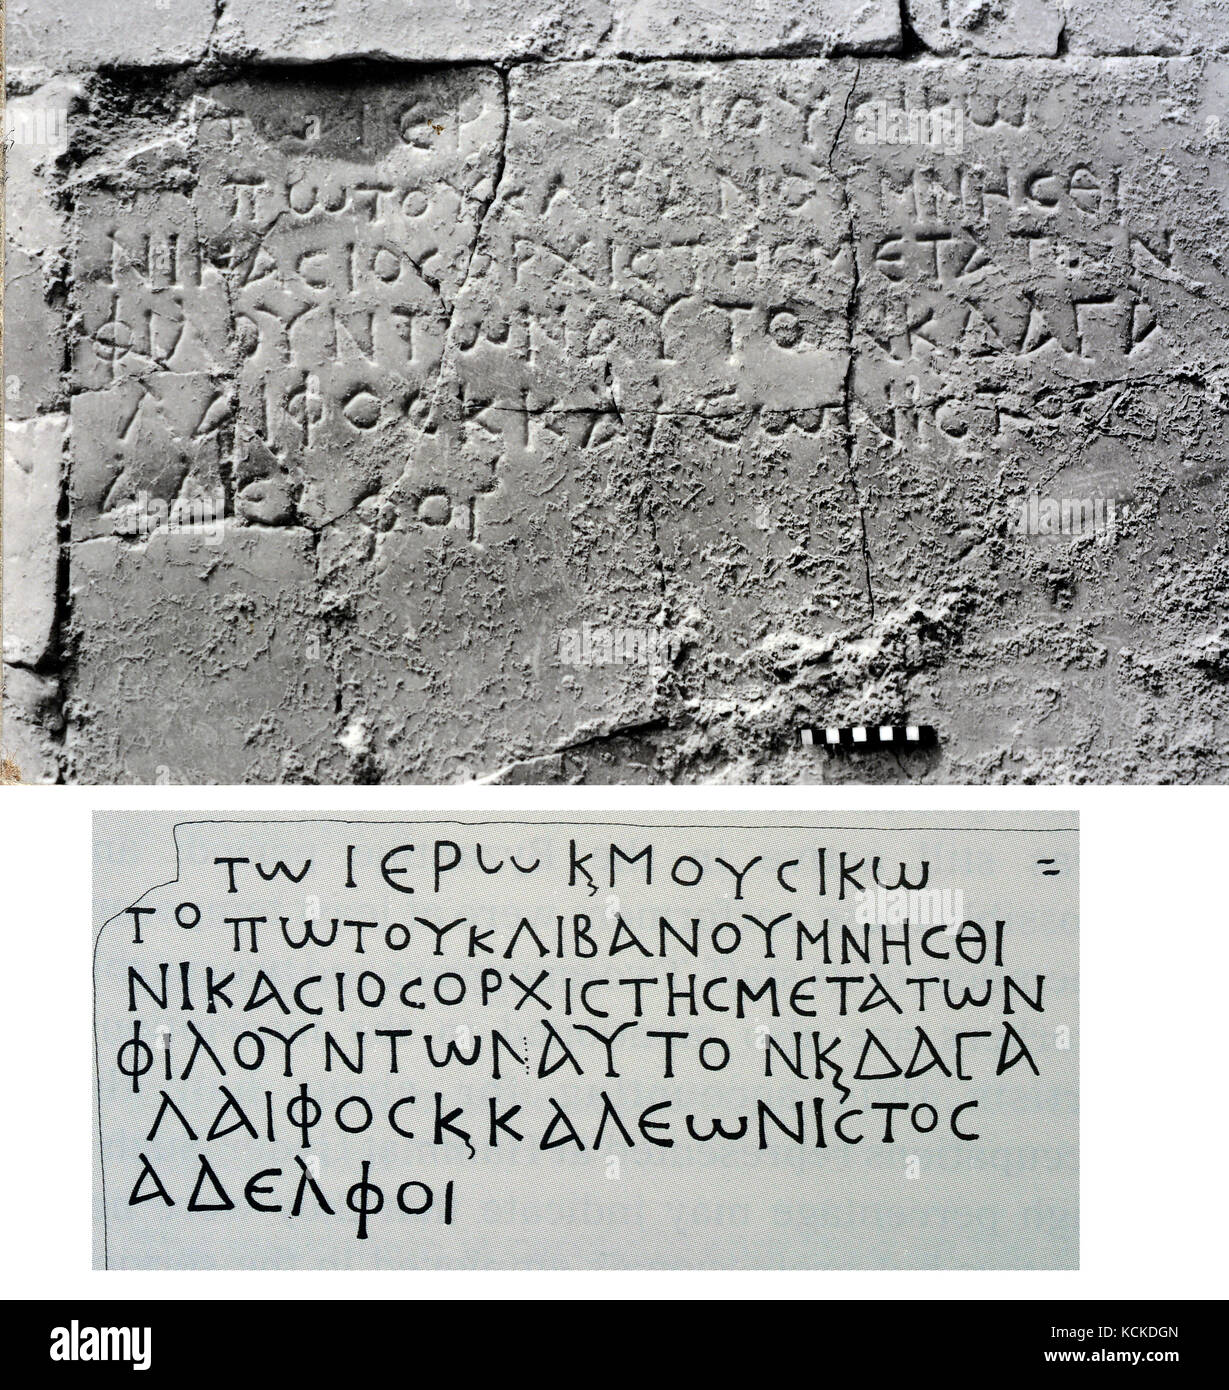 ΤΩ ΙΕΡΩ Κ ΜΟΥCΙΚΩ
ΠΩΤΟΥΚΛΙΒΑΝΟΥΜΝΗCΘΙ
ΝΙΚΑCΙΟCΟΡΧΙCΤΗCΜΕΤΑΤΩΝ
ΦΙΛΟΥΝΤΩΝΑΥΤΟΝΚΔΑΓΑ
ΛΑΙΦΟCΚΚΑΛΕΩΝΙCΤΟC
ΑΔΕΛΦΟΙ
ΤΩ ΙΕΡΩ Κ ΜΟΥCΙΚΩ =
ΤΟ ΠΩΤΟΥΚΛΙΒΑΝΟΥΜΝΗCΘΙ
ΝΙΚΑCΙΟCΟΡΧΙCΤΗCΜΕΤΑΤΩΝ
ΦΙΛΟΥΝΤΩΝΑΥΤΟ ΝΚΔΑΓΑ
ΛΑΙΦΟCΚΚΑΛΕΩΝΙCΤΟC
ΑΔΕΛΦΟΙ
alamy
Image ID: KCKDGN
www.alamy.com